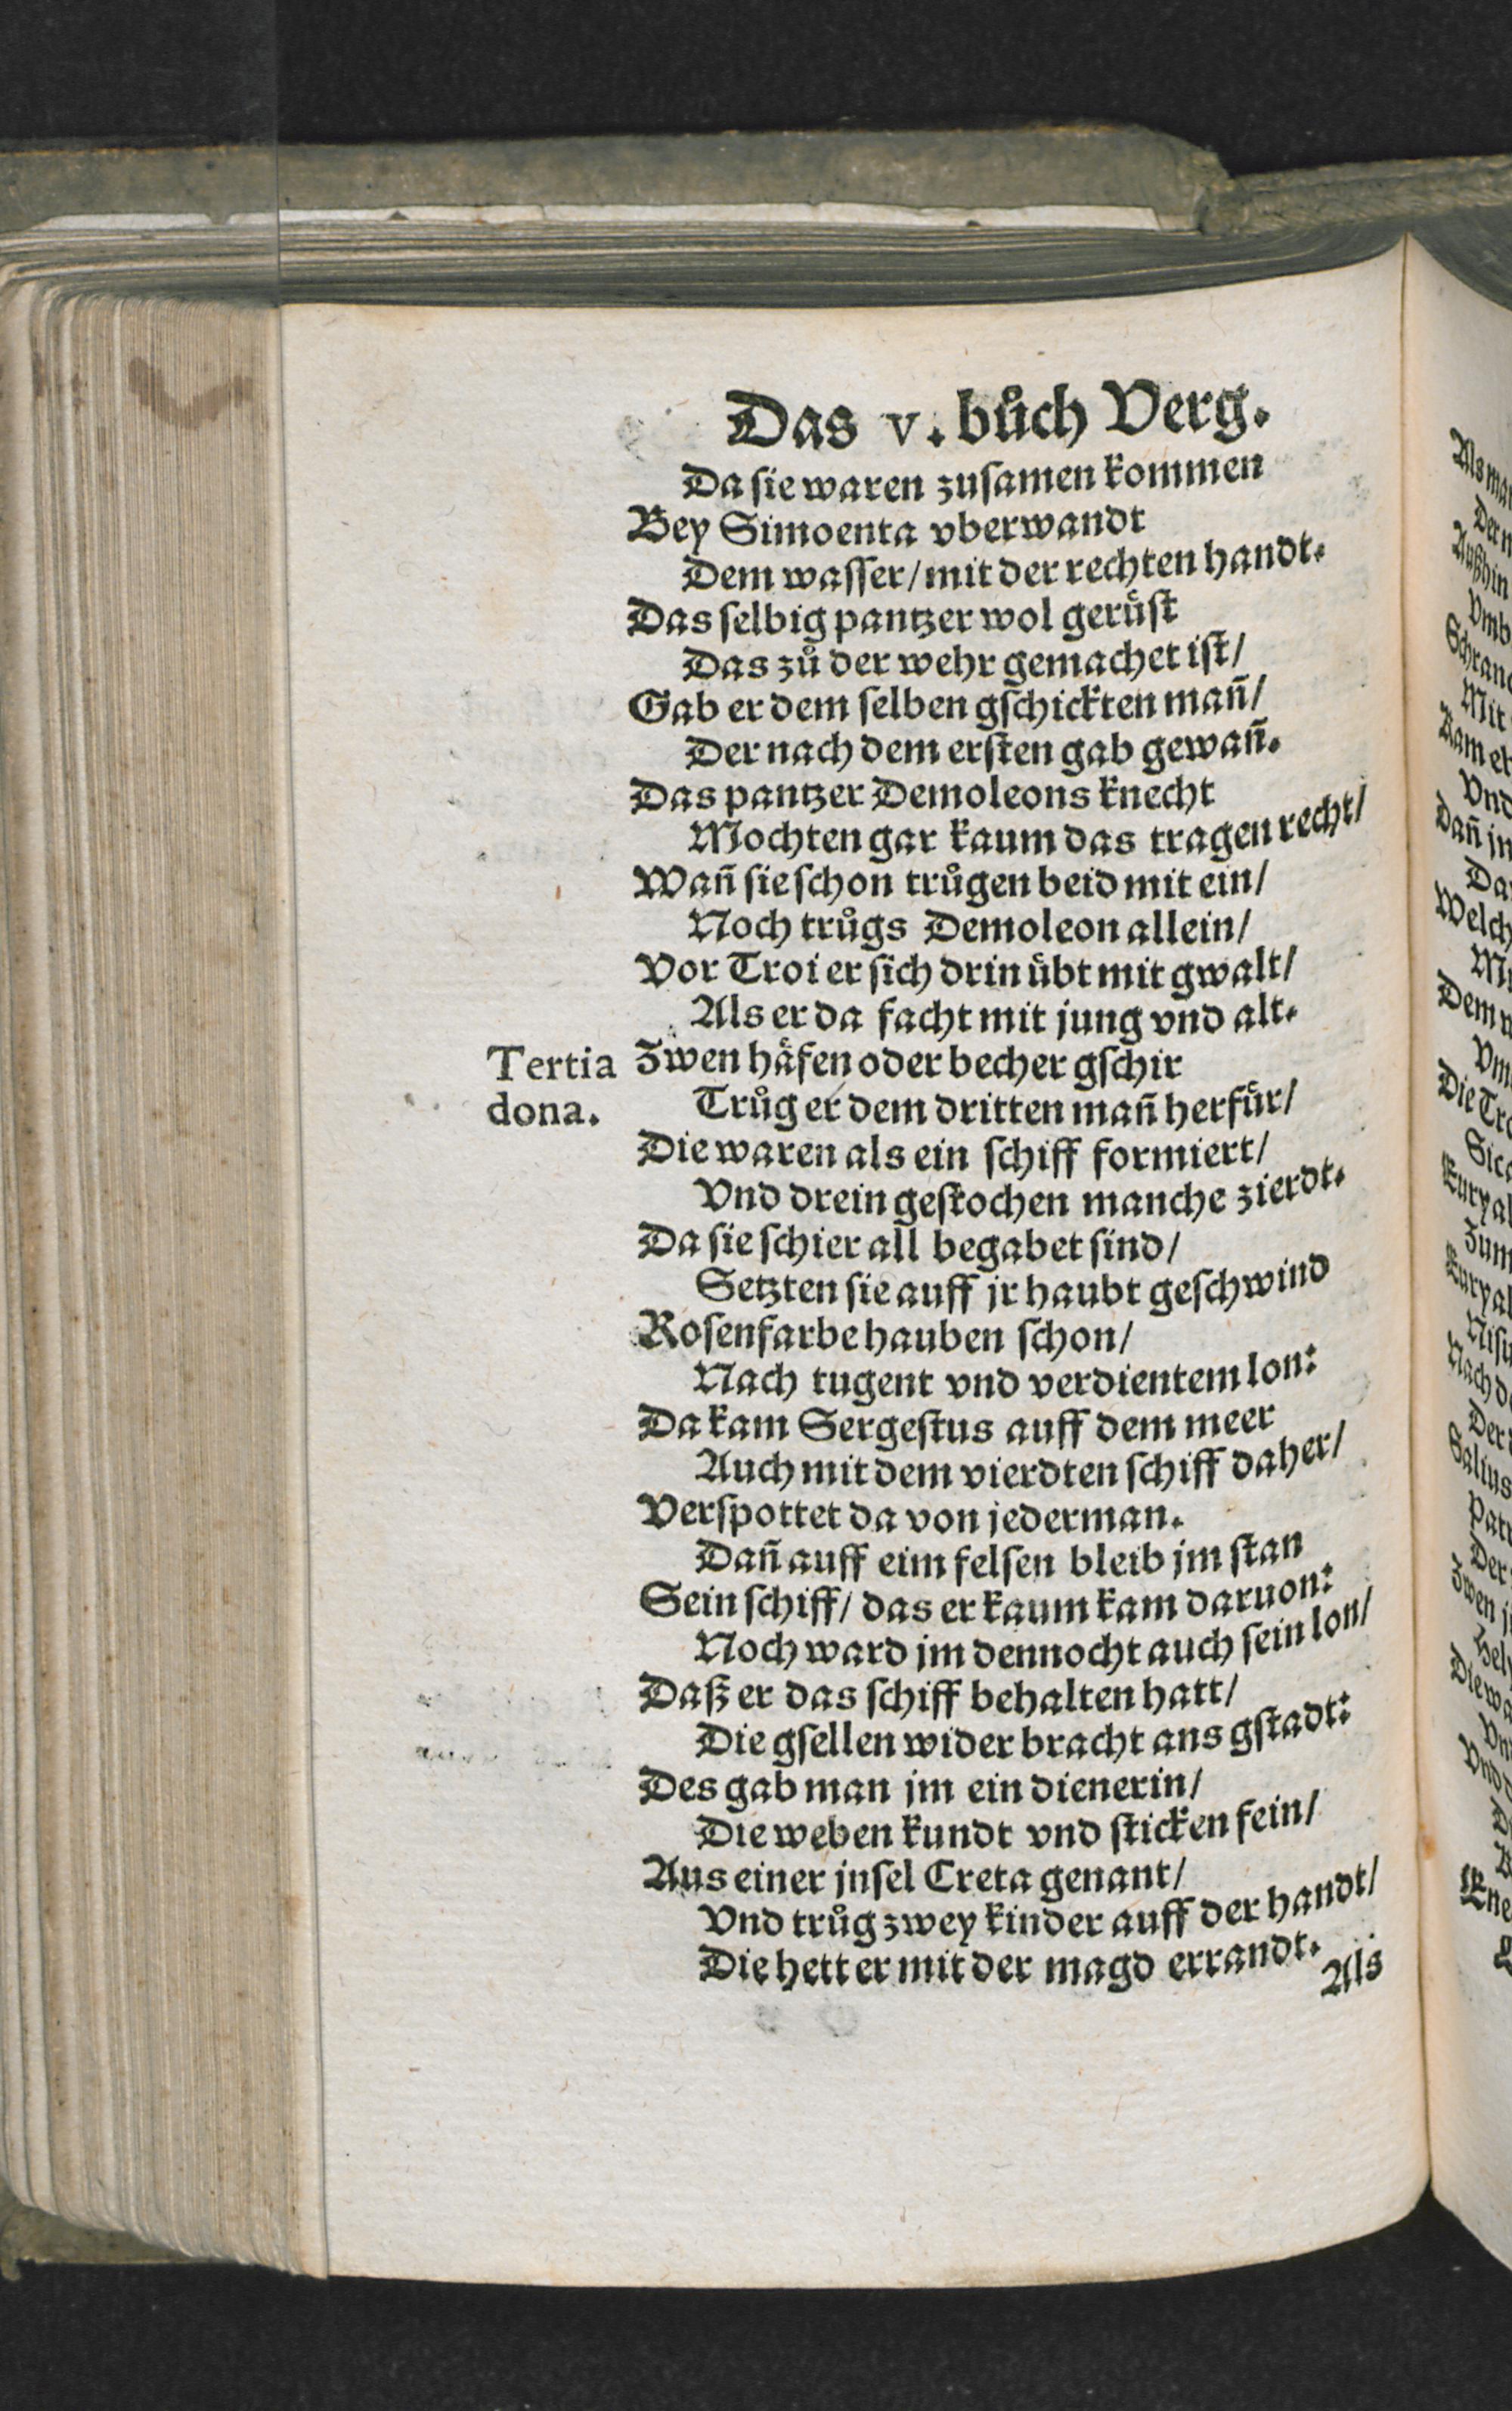 Das v. bůch Verg.
Da sie waren zusamen kommen
Bey Simoenta vberwandt
Dem wasser/ mit der rechten handt.
Das selbig pantzer wol gerüst
Das zů der wehr gemachet ist/
Gab er dem selben gschickten mañ/
Der nach dem ersten gab gewañ.
Das pantzer Demoleons knecht
Mochten gar kaum das tragen recht/
Wañ sie schon trůgen beid mit ein/
Noch trůgs Demoleon allein/
Vor Troi er sich drin übt mit gwalt/
Als er da facht mit jung vnd alt.
Tertia dona.
Zwen häfen oder becher gschir
Trůg er dem dritten mañ herfür/
Die waren als ein schiff formiert/
Vnd drein gestochen manche zierdt.
Da sie schier all begabet sind/
Setzten sie auff jr haubt geschwind
Rosenfarbe hauben schon/
Nach tugent vnd verdientem lon:
Da kam Sergestus auff dem meer
Auch mit dem vierdten schiff daher/
Verspottet da von jederman.
Dañ auff eim felsen bleib jm stan
Sein schiff/ das er kaum kam daruon:
Noch ward jm dennocht auch sein lon/
Daß er das schiff behalten hatt/
Die gsellen wider bracht ans gstadt:
Des gab man jm ein dienerin/
Die weben kundt vnd sticken fein/
Aus einer jnsel Creta genant/
Vnd trůg zwey kinder auff der handt/
Die hett er mit der magd errandt.
Als